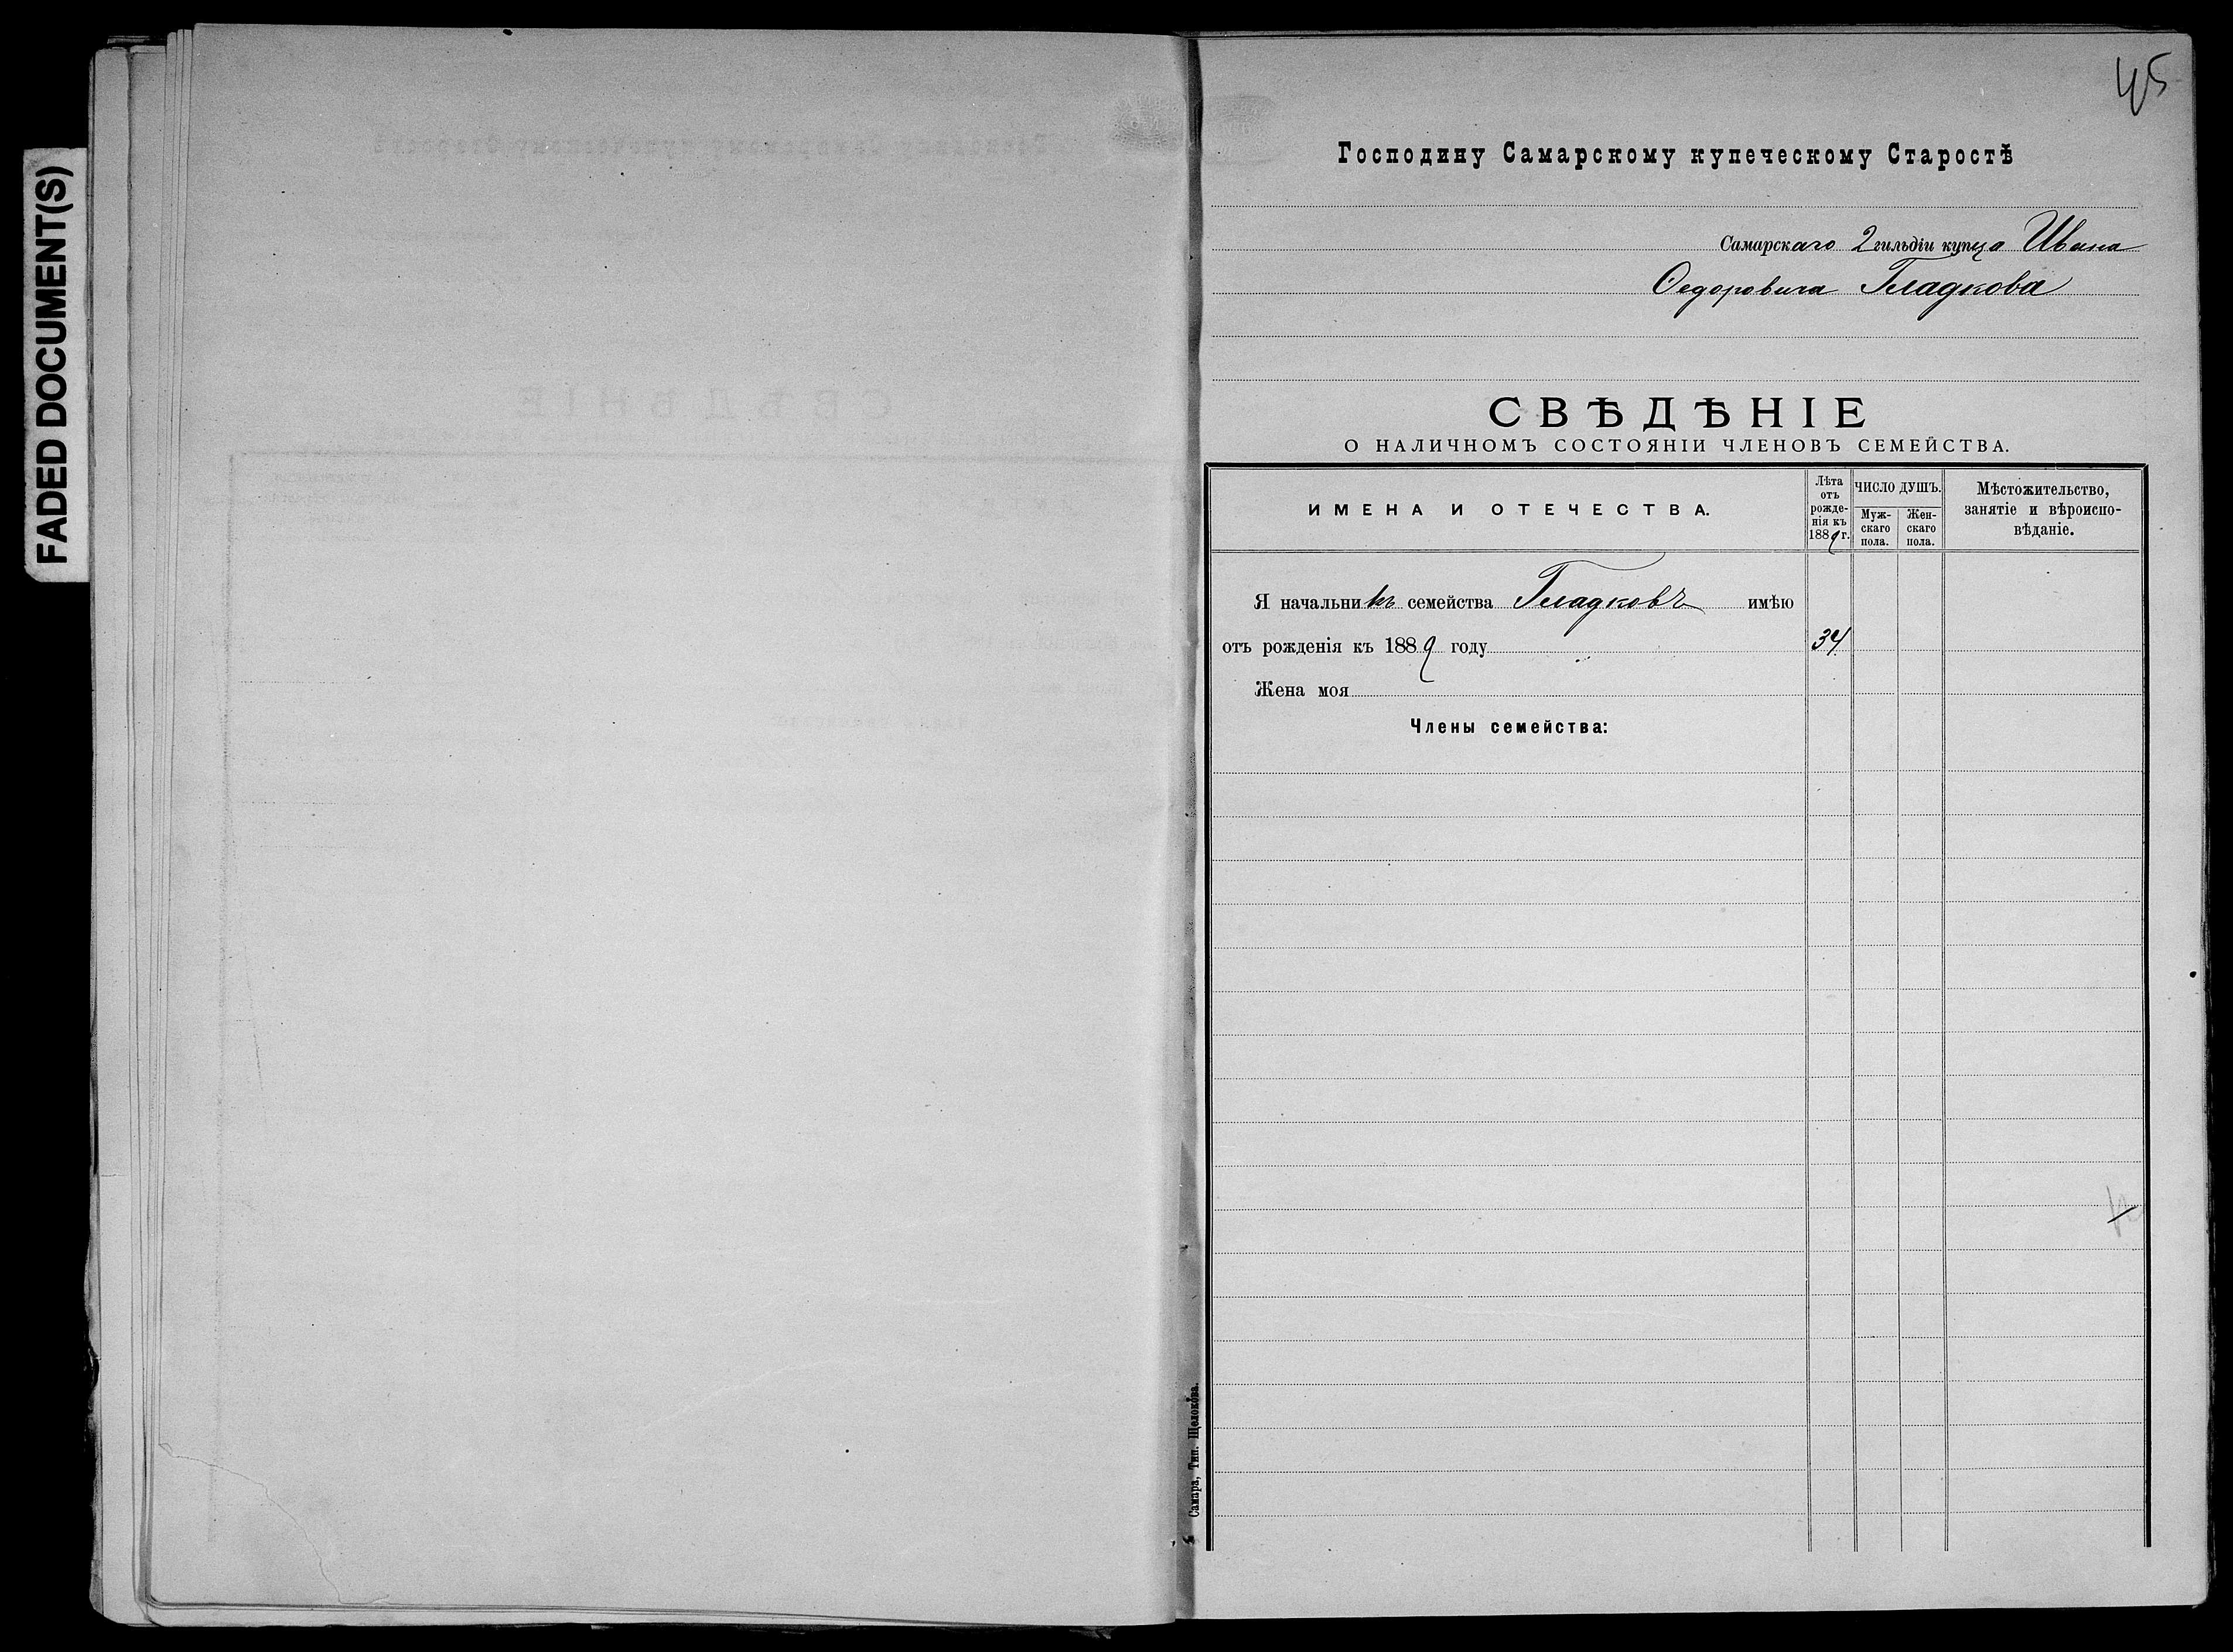 FADED DOCUMENT(S)
45
Господину Самарскому купеческому Старостѣ
Самарскаго 2 гильдіи купца Ивана
Ѳедоровича Гладкова
СВѢДѢНІЕ
О НАЛИЧНОМЪ СОСТОЯНІИ ЧЛЕНОВЪ СЕМЕЙСТВА.
ИМЕНА И ОТЕЧЕСТВА.
Лѣта
отъ
рожде-
нія къ
1889 г.
ЧИСЛО ДУШЪ.
Муж-
скаго
пола.
Жен-
скаго
пола.
Мѣстожительство,
занятіе и вѣроиспо-
вѣданіе.
Я начальникъ семейства Гладковъ имѣю
отъ рожденія къ 1889 году 34
Жена моя
Члены семейства:
Самара, Тип. Щелокова.